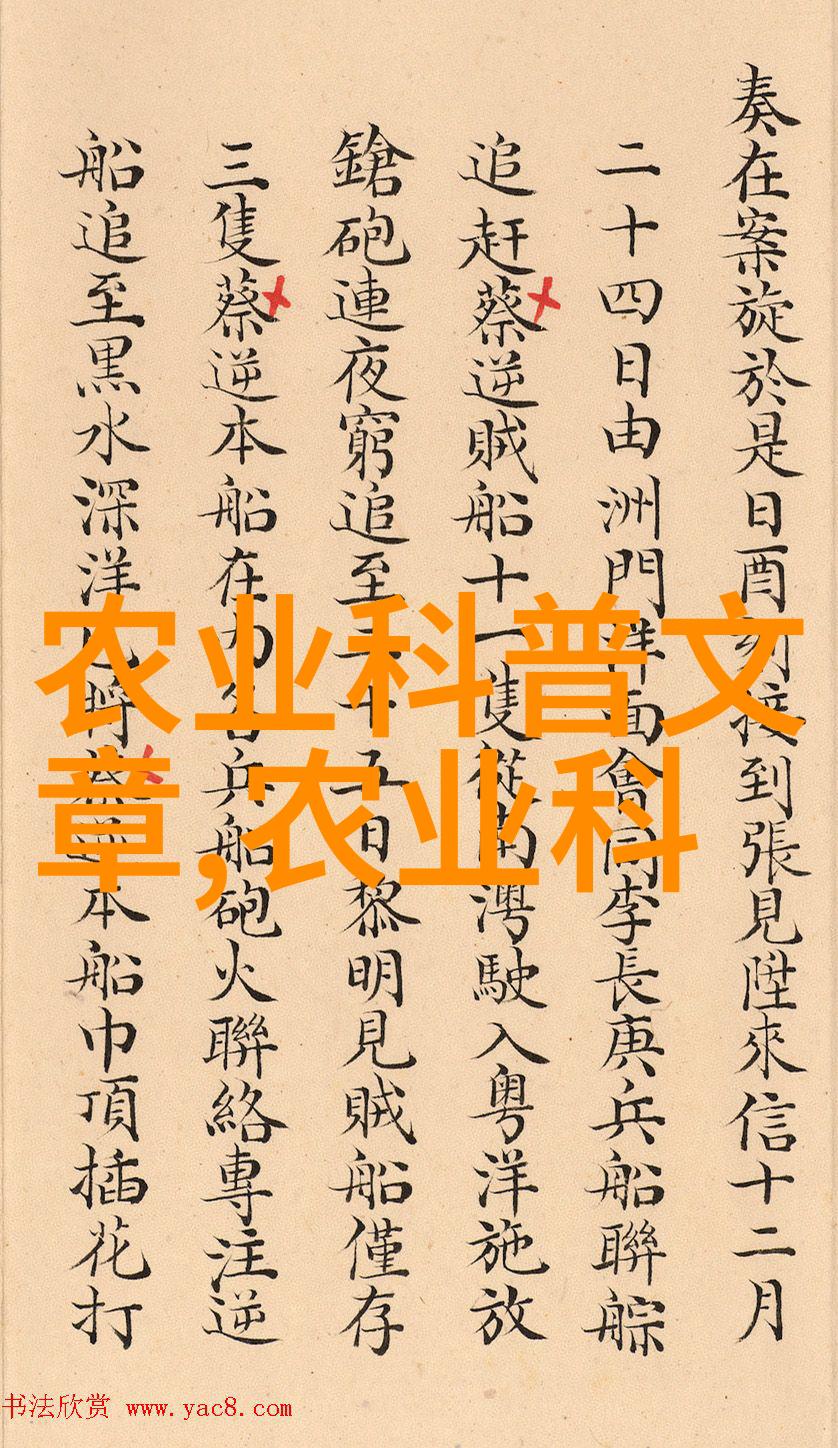 奏在案旋於是日酉刻接到張見陞來信十二月
二十四日由洲門洋面會同李長庚兵船聯䑸
追赶蔡逆賊船十一隻從南駛入粤洋施放
鎗砲連夜窮追至二十五日黎明見賊船僅存
三隻蔡逆本船在內各兵船砲火聯絡專注逆
船追至黒水深洋已將蔡逆本船巾頂插花打
农业科普文
章,农业科
书法欣赏 www.yac8.com